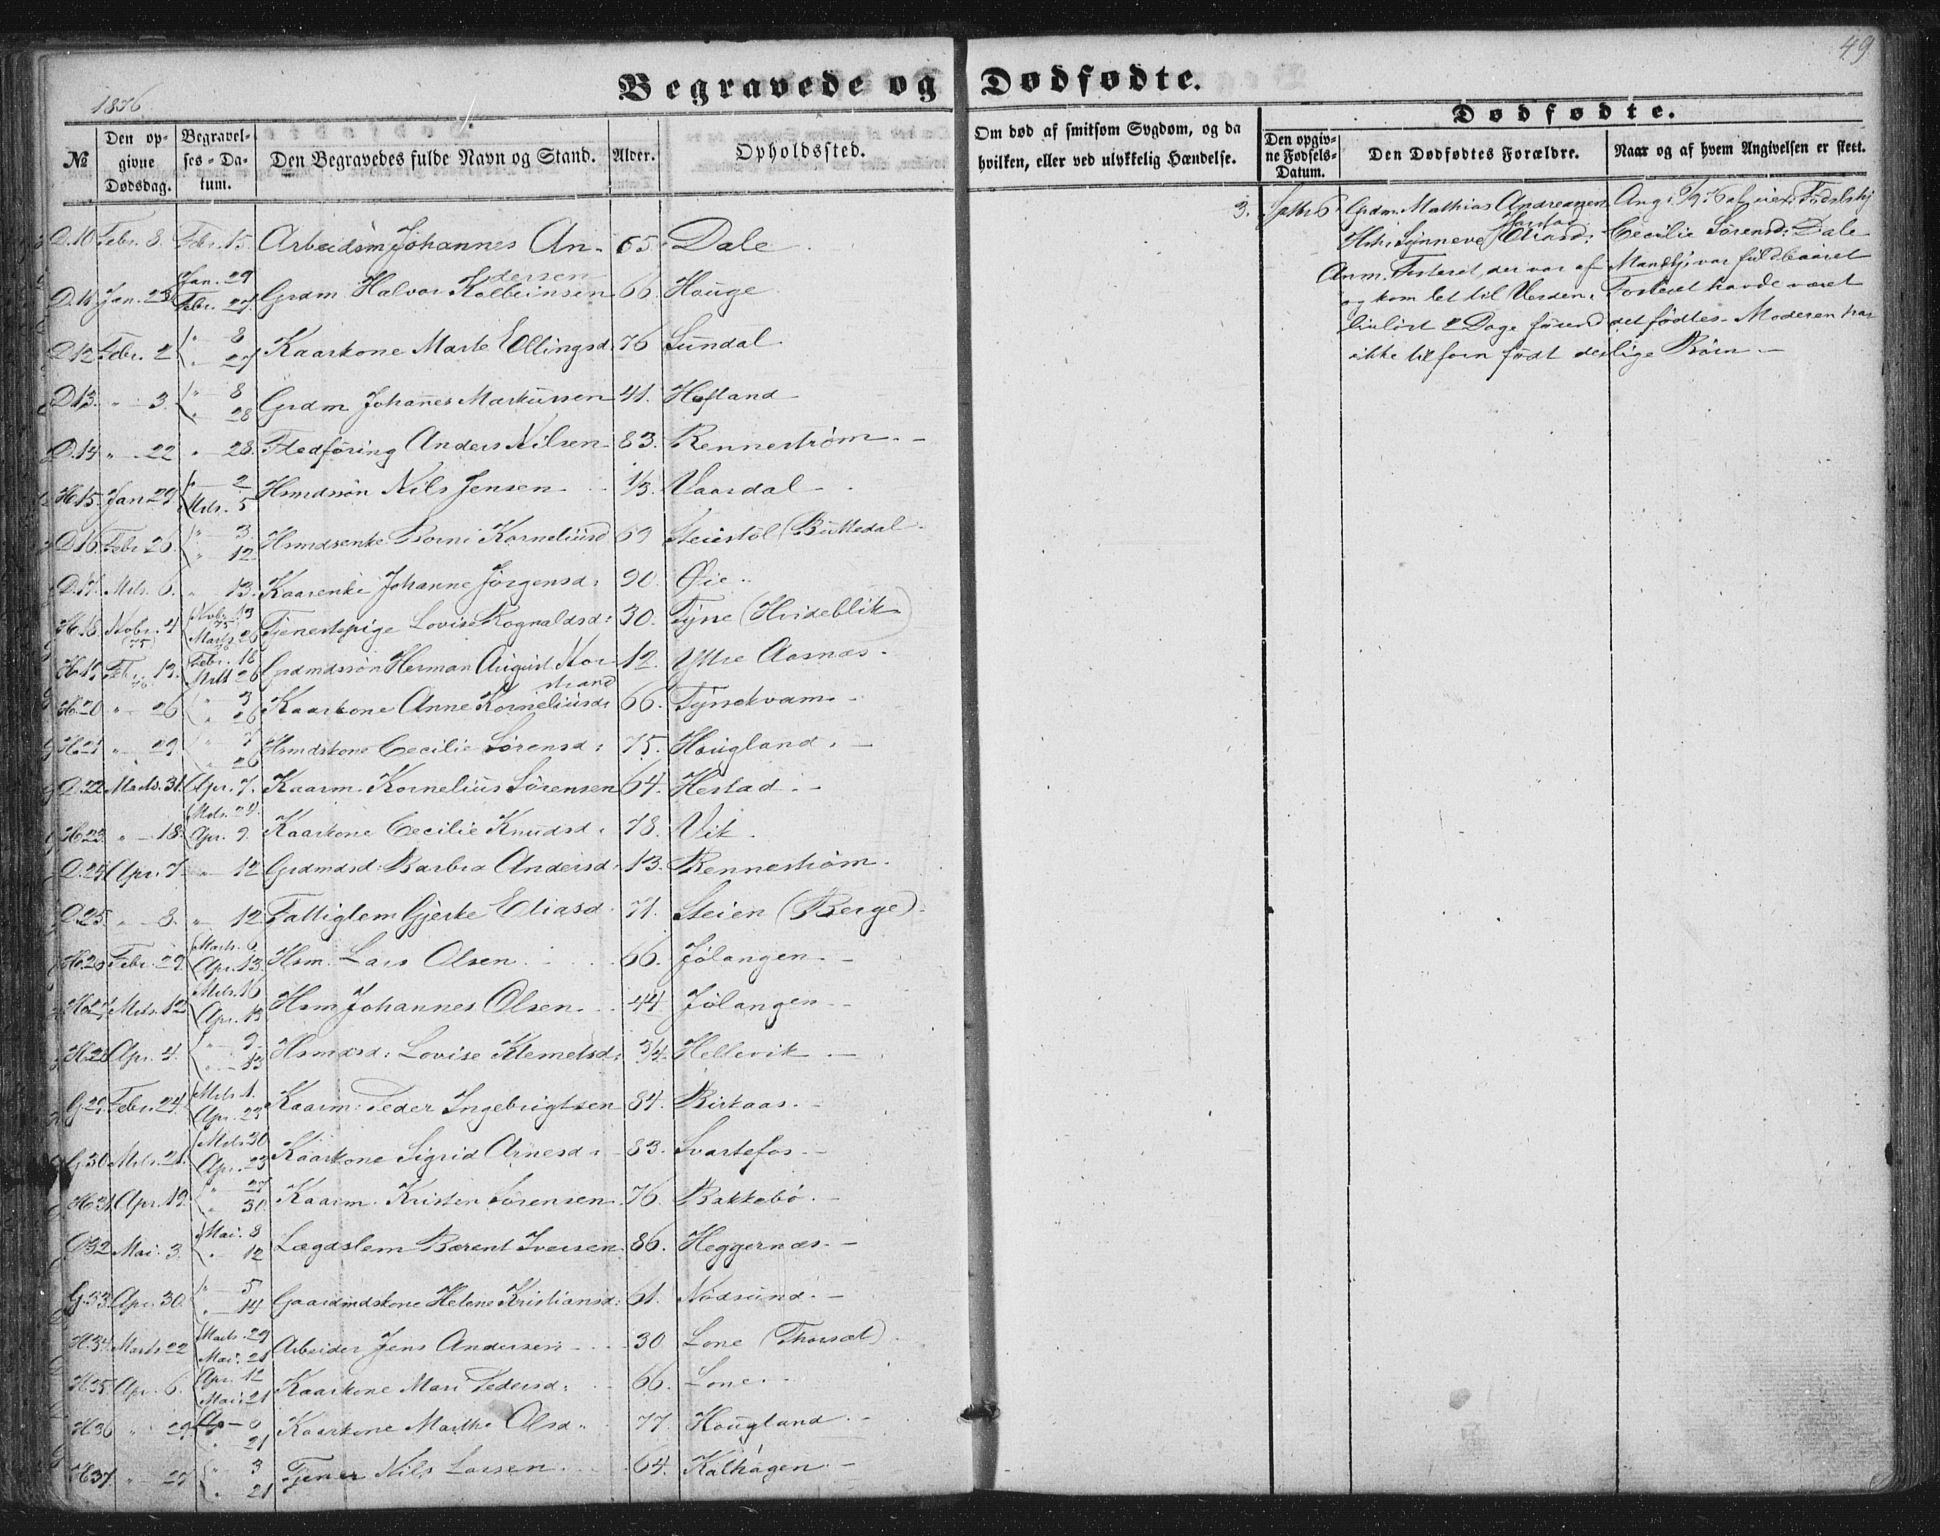 49
1876.
Begravede og Dødfødte.
Dødfødte.
№
Den opgivne Dødsdag.
Begravelses-Datum.
Den Begravedes fulde Navn og Stand.
Alder.
Opholdssted.
Om død af smitsom Sygdom, og da hvilken, eller ved ulykkelig Hændelse.
Den opgivne Fødsels-Datum.
Den Dødfødtes Forældre.
Naar og af hvem Angivelsen er skeet.
D. 10 Febr. 8. Febr. 15 Arbeidsm Johannes Andersen 65 Dale
D. 11 Jan. 23 Jan. 29 Febr. 27. Grdm Halvor Kolbeinsen 66. Houge
D. 12 Febr. 2 " 8 " 27 Kaarkone Marte Ellingsd. 76 Sundal
D. 13. " 3. " 8 " 28 Grdm Johannes Markussen 41. Hofland
D. 14 " 22 " 28. Fledføring Anders Nilsen 83. Rennestrøm.
H. 15. Jan 29 " 2 Mrts. 5 Hsmdssøn Nils Jensen 1/3. Vaardal
D. 16. Febr. 26. " 3. " 12. Hsmdsenke Børni Korneliusd 69 Steiestøl (Buttedal
D. 17. Mrts. 6. " 13. Kaarenke Johanne Jørgensd: 90. Øie.
H. 18 Novbr. 4 (75) Novbr. 13 75 Marts 26 76 Tjenestepige Lovise Rognaldsd: 30. Tyne (Hvideblik)
H. 19 Febr. 13. 76 Febr. 16 Mrts 26 Grdmdssøn Herman August Norstrand 12. Ytre Aasnæs.
H. 20 " 26 " 3 " 26 Kaarkone Anne Korneliusd: 66. Tyssekvam
H. 21 " 29 " 7 " 26 Hsmdskone Cecilie Sørensd: 75. Hougland.
D. 22. Marts. 31. Apr. 7. Kaarm. Kornelius Sørensen 64. Hestad.
H. 23. " 18. Mrts. 24. Apr. 9. Kaarkone Cecilie Knudsd: 78. Vik.
D. 24 Apr. 7. " 12 Grdmdsd: Barbra Andersd: 13. Rennestrøm.
D. 25. " 8. " 12 Fattiglem Gjerke Eliasd. 71. Steien (Berge).
H. 26 Febr. 29. Marts. 6 Apr. 13. Hsm. Lars Olsen. 66. Jølangen.
H. 27. Mrts. 12 Mrts. 16 Apr. 13 Hsm Johannes Olsen. 44. Jølangen.
H. 28 Apr. 4. " 9. " 13 Hsmdsd: Lovise Klemetsd: 3/4. Hellevik.
G. 29. Febr. 24. Mrts. 1. Apr. 23. Kaarm: Peder Ingebrigtsen 84. Birkaas.
G. 30. Mrts. 21. Mrts 30 Apr. 23 Kaarkone Sigrid Arnesd: 83. Svartefos.
H. 31 Apr. 19. " 27 " 30. Kaarm. Kristen Sørensen. 76. Bakkebø.
D. 32 Mai. 3. Mai. 8 " 12 Lægdslem Bærent Iversen. 86. Heggernæs.
G. 33. Apr. 30. " 5 " 14 Gaardmdskone Helene Kristiansd: 61. Nødsund.
H. 34. Marts 22 Marts. 29 Mai. 21 Arbeider Jens Andersen. 30 Lone (Thorsæt).
H. 35. Apr. 6. Apr. 12 Mai. 21 Kaarkone Mari Pedersd: 66. Lone.
H. 36 " 29. 6 " 21 Kaarkone Marthe Olsd. 77. Hougland.
H. 37. " 27 " 3 " 21 Tjener Nils Larsen. 64. Kalhagen.
3. Septbr 6. Grdm. Mathias Andreassen Hestad
Hst: Synneve Eliasd:
Ang: 9/9 76 af vieds Fødselshj Cecilie Sørensd: Dale
Anm. Fosteret, der var af Mandkj: var fuldbaaret
og kom let til Verden. Fosteret havde været
livløst 2 Dage førend det fødtes. Moderen har
ikke tilforn født deslige Børn.